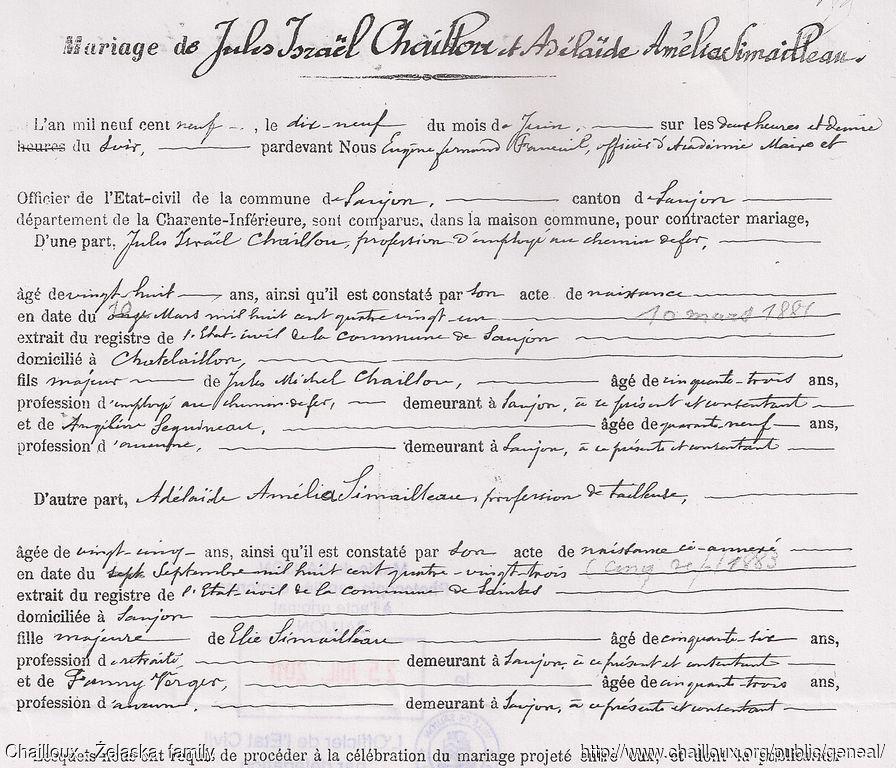 Mariage de Jules Israël Chaillou et Adélaïde Amélia Simailleau.
L'an mil neuf cent neuf, le dix-neuf du mois de Juin, sur les deux heures et demie
heures du soir, pardevant Nous Eugène Fernand Faneuil, officier d'Académie Maire et
Officier de l'Etat-civil de la commune de Saujon, canton de Saujon
département de la Charente-Inférieure, sont comparus, dans la maison commune, pour contracter mariage,
D'une part, Jules Israël Chaillou, profession d'employé au chemin de fer,
âgé de vingt-huit ans, ainsi qu'il est constaté par son acte de naissance
en date du Mars mil huit cent quatre vingt-un 10 mars 1881
extrait du registre de l'Etat-civil de la commune de Saujon
domicilié à Chatelaillon,
fils majeur de Jules Michel Chaillou, âgé de cinquante-trois ans,
profession d'employé au chemin de fer, demeurant à Saujon, à ce présent et consentant
et de Angéline Seguineau, âgée de quarante-neuf ans,
profession d'aucune, demeurant à Saujon, à ce présente et consentant
D'autre part, Adélaïde Amélia Simailleau, profession de tailleuse,
âgée de vingt-cinq ans, ainsi qu'il est constaté par son acte de naissance ci-annexé
en date du sept Septembre mil huit cent quatre-vingt-trois (cinq sept 1883
extrait du registre de l'Etat civil de la commune de Saintes
domiciliée à Saujon
fille majeure de Elie Simailleau âgé de cinquante-six ans,
profession de retraité, demeurant à Saujon, à ce présent et consentant
et de Fanny Verger, âgée de cinquante-trois ans,
profession d'aucune, demeurant à Saujon, à ce présente et consentant
Lesquels nous ont requis de procéder à la célébration du mariage projeté entre eux, et dont la publication
Chailloux - Żelaska family http://www.chailloux.org/public/geneal/